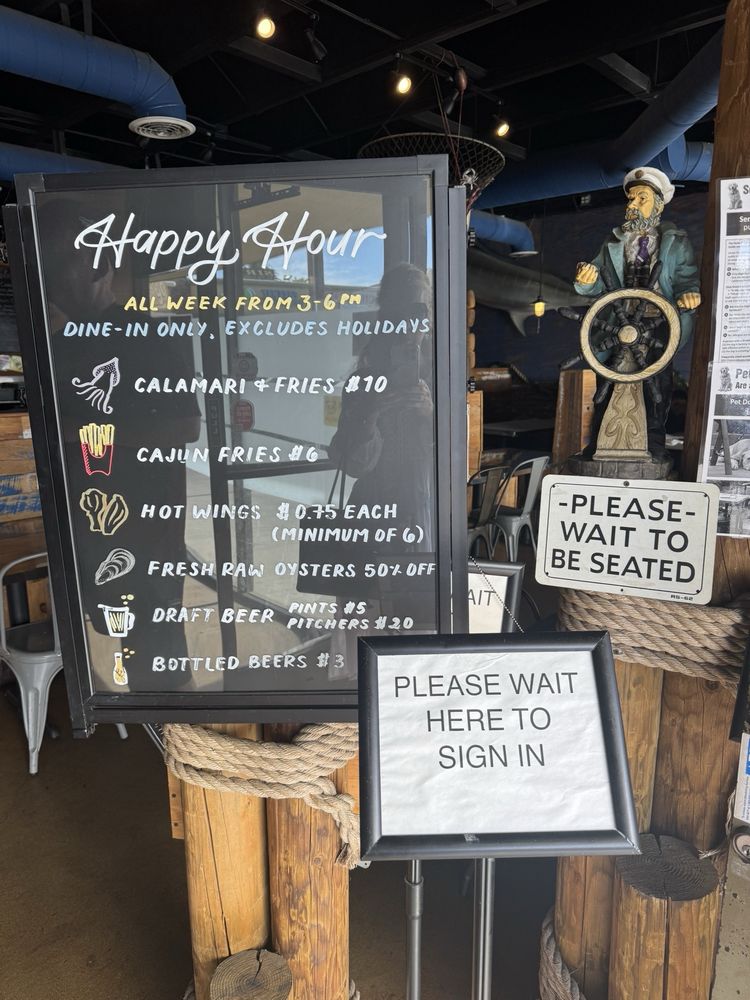 Happy Hour
ALL WEEK FROM 3-6PM
DINE-IN ONLY, EXCLUDES HOLIDAYS
CALAMARI & FRIES $10
CAJUN FRIES $6
HOT WINGS $0.75 EACH
(MINIMUM OF 6)
FRESH RAW OYSTERS 50% OFF
DRAFT BEER PINTS $5
PITCHERS $20
BOTTLED BEERS $3
-PLEASE-
WAIT TO
BE SEATED
RS-62
AIT
PLEASE WAIT
HERE TO
SIGN IN